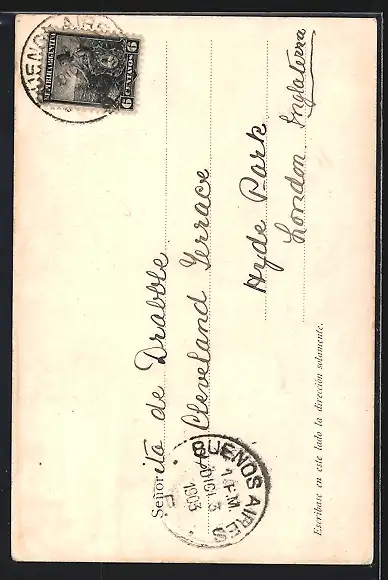 BUENOS AIRES
REPUBLICA ARGENTINA
6 CENTAVOS 6
Señorita de Drabble
Cleveland Terrace
Hyde Park
London Inglaterra
BUENOS AIRES
1903
Escríbase en este lado la dirección solamente.